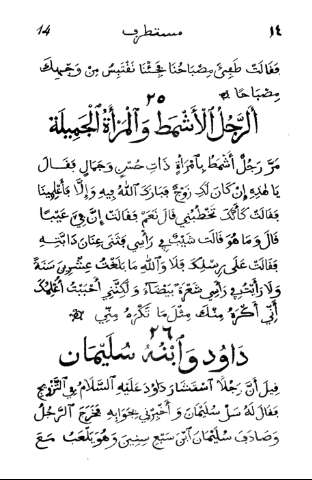 ١٤ مستطرف 14
فَقَالَتْ طَفِئَ مِصْبَاحُنَا فَجِئْنَا نَقْتَبِسُ مِنْ وَجْهِكَ
مِصْبَاحًا
٢٥
اَلرَّجُلُ الْأَشْمَطُ وَالْمَرْأَةُ الْجَمِيلَةُ
مَرَّ رَجُلٌ أَشْمَطُ بِامْرَأَةٍ ذَاتِ حُسْنٍ وَجَمَالٍ فَقَالَ
يَا هٰذِهِ إِنْ كَانَ لَكِ زَوْجٌ فَبَارَكَ اللهُ فِيهِ وَإِلَّا فَأَعْلِمِينَا
فَقَالَتْ كَأَنَّكَ تَخْطُبُنِي قَالَ نَعَمْ فَقَالَتْ إِنَّ فِيَّ عَيْبًا
قَالَ وَمَا هُوَ قَالَتْ شَيْبٌ فِي رَأْسِي فَثَنَى عِنَانَ دَابَّتِهِ
فَقَالَتْ عَلَى رِسْلِكَ فَلَا وَاللهِ مَا بَلَغْتُ عِشْرِينَ سَنَةً
وَلَا رَأَيْتُ فِي رَأْسِي شَعْرَةً بَيْضَاءَ وَلٰكِنَّنِي أَحْبَبْتُ أُعْلِمُكَ
أَنِّي أَكْرَهُ مِنْكَ مِثْلَ مَا تَكْرَهُ مِنِّي
٢٦
دَاوُد وَابْنُهُ سُلَيْمَان
قِيلَ أَنَّ رَجُلًا اسْتَشَارَ دَاوُدَ عَلَيْهِ السَّلَامُ فِي التَّزْوِيجِ
فَقَالَ لَهُ سَلْ سُلَيْمَانَ وَأَخْبِرْنِي بِجَوَابِهِ فَخَرَجَ الرَّجُلُ
وَصَادَفَ سُلَيْمَانَ ابْنَ سَبْعِ سِنِينَ وَهُوَ يَلْعَبُ مَعَ